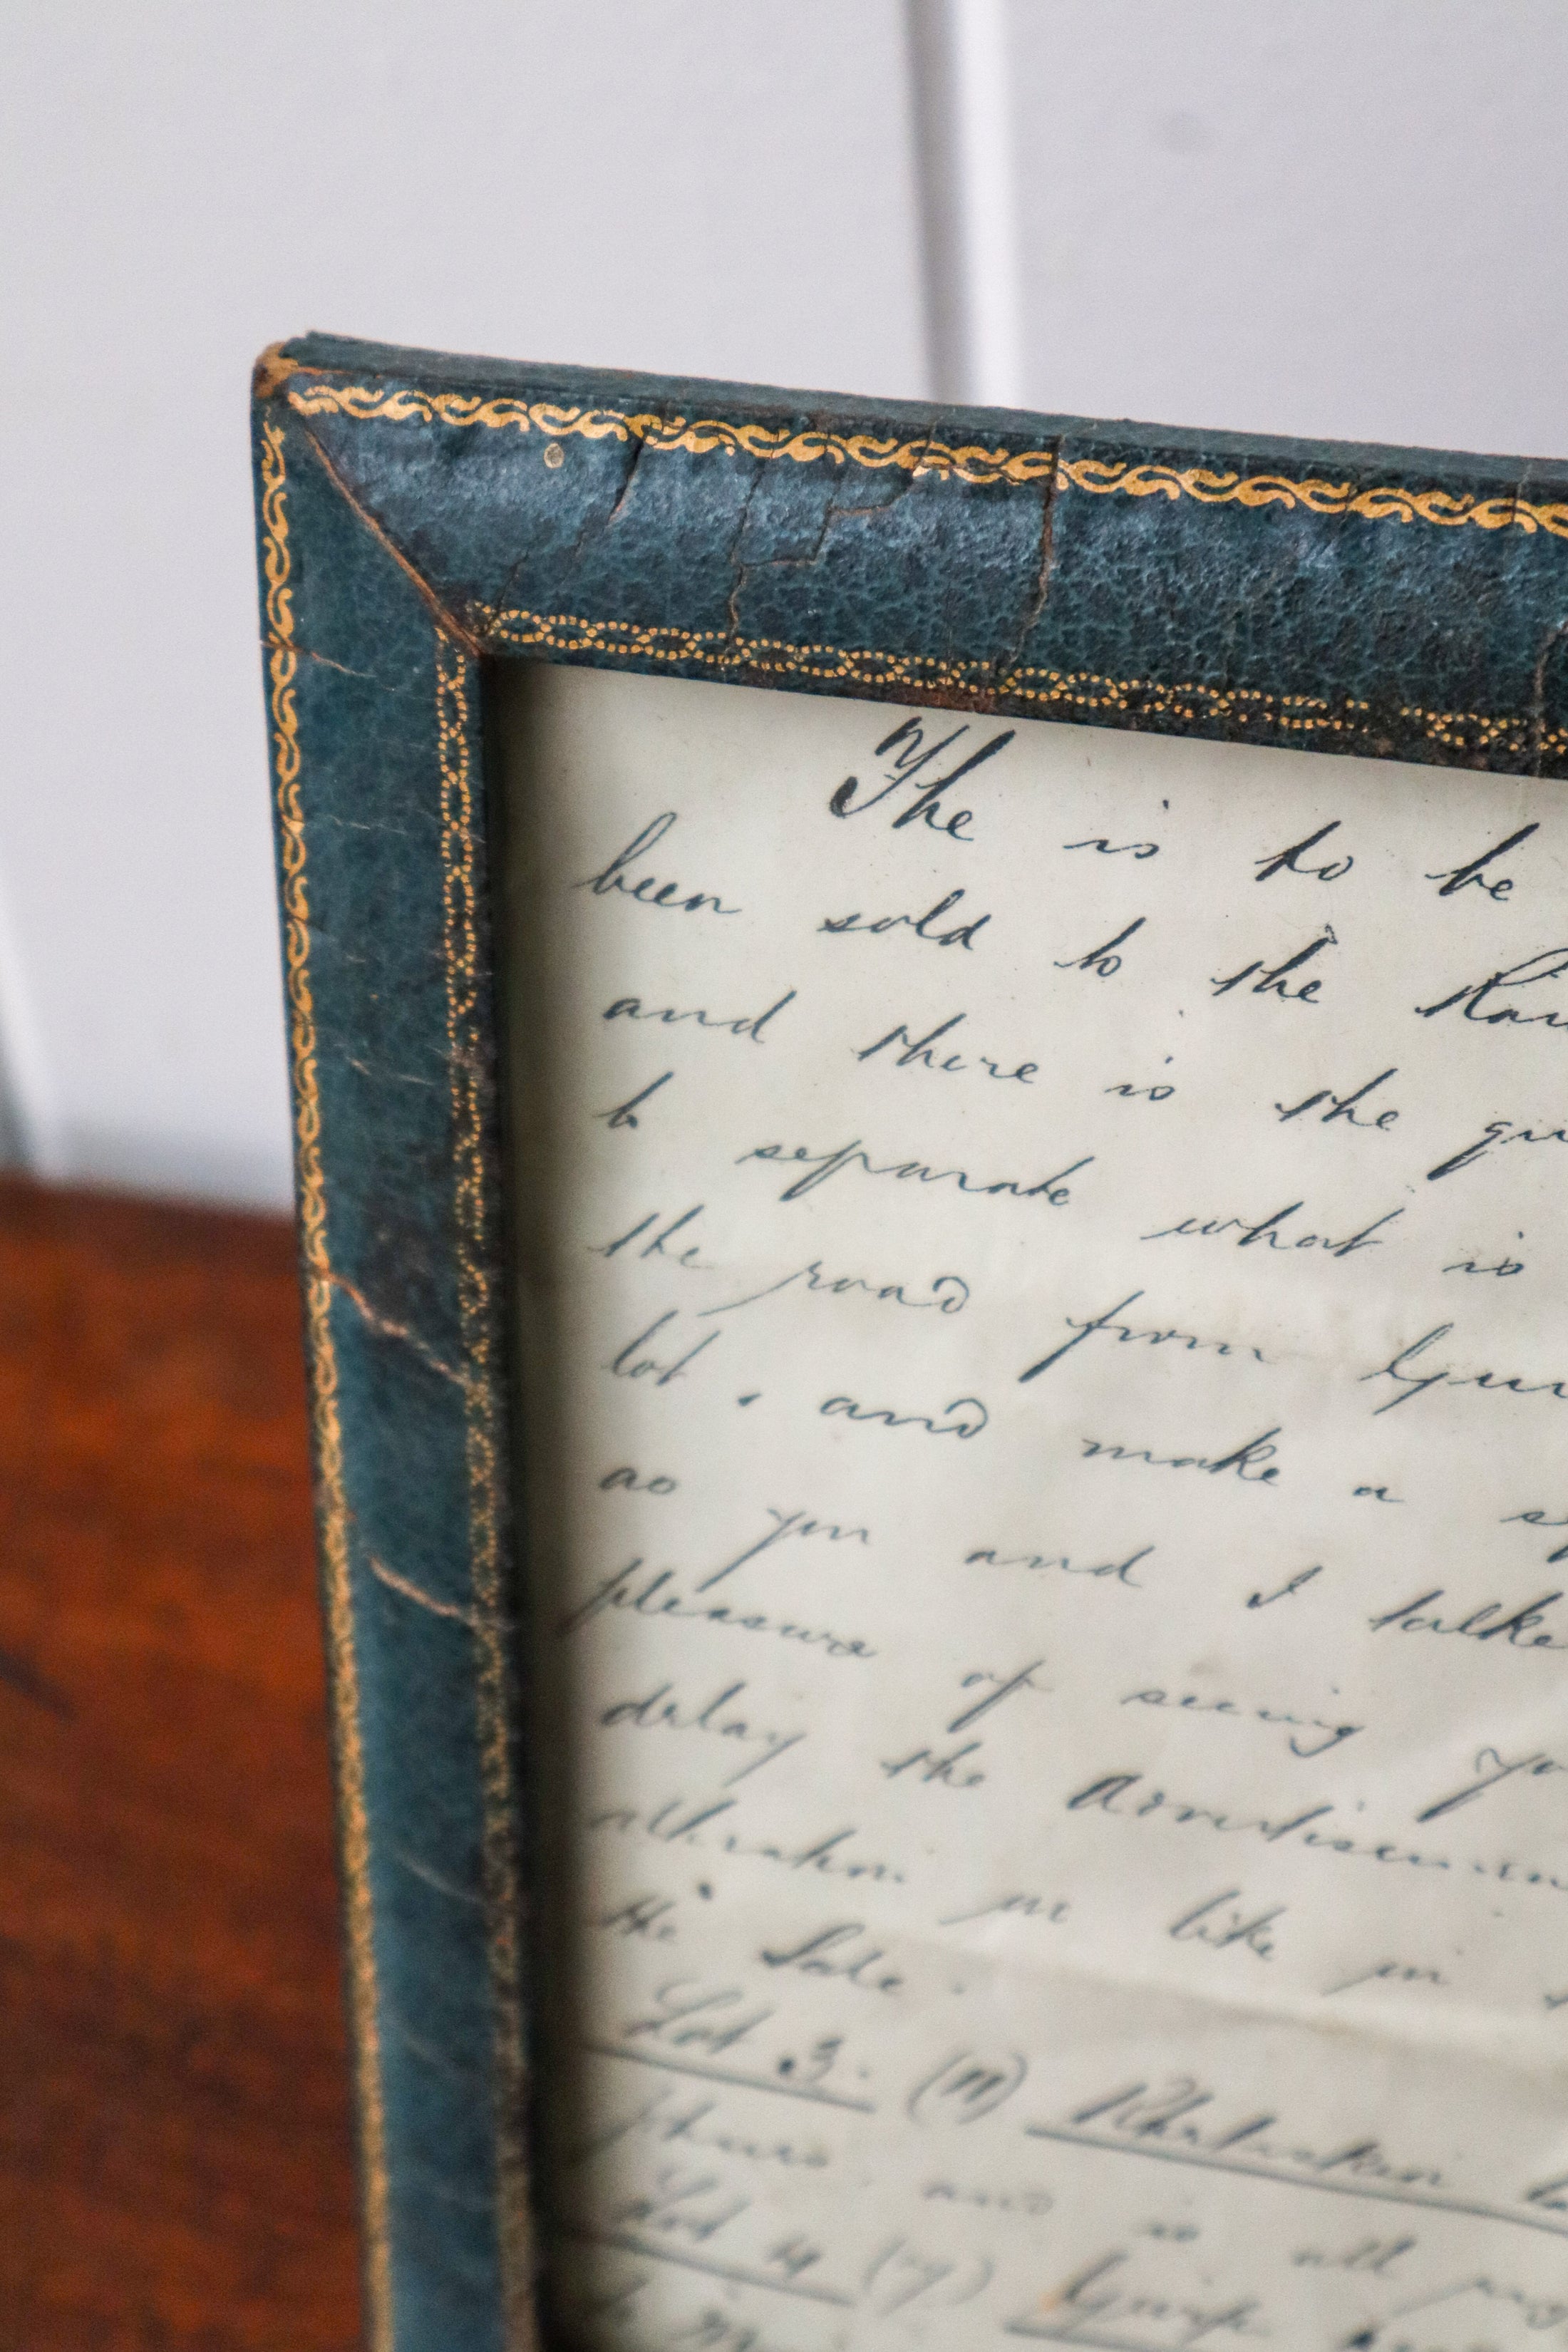 The is to be
been sold to the
and there is the
to separate what is
the road from
lot, and make a
as you and I talke
pleasure of seeing yo
delay the Advertisemen
alteration in like in
the Sale.
Lot 3. (11)
and is all
Lot 4